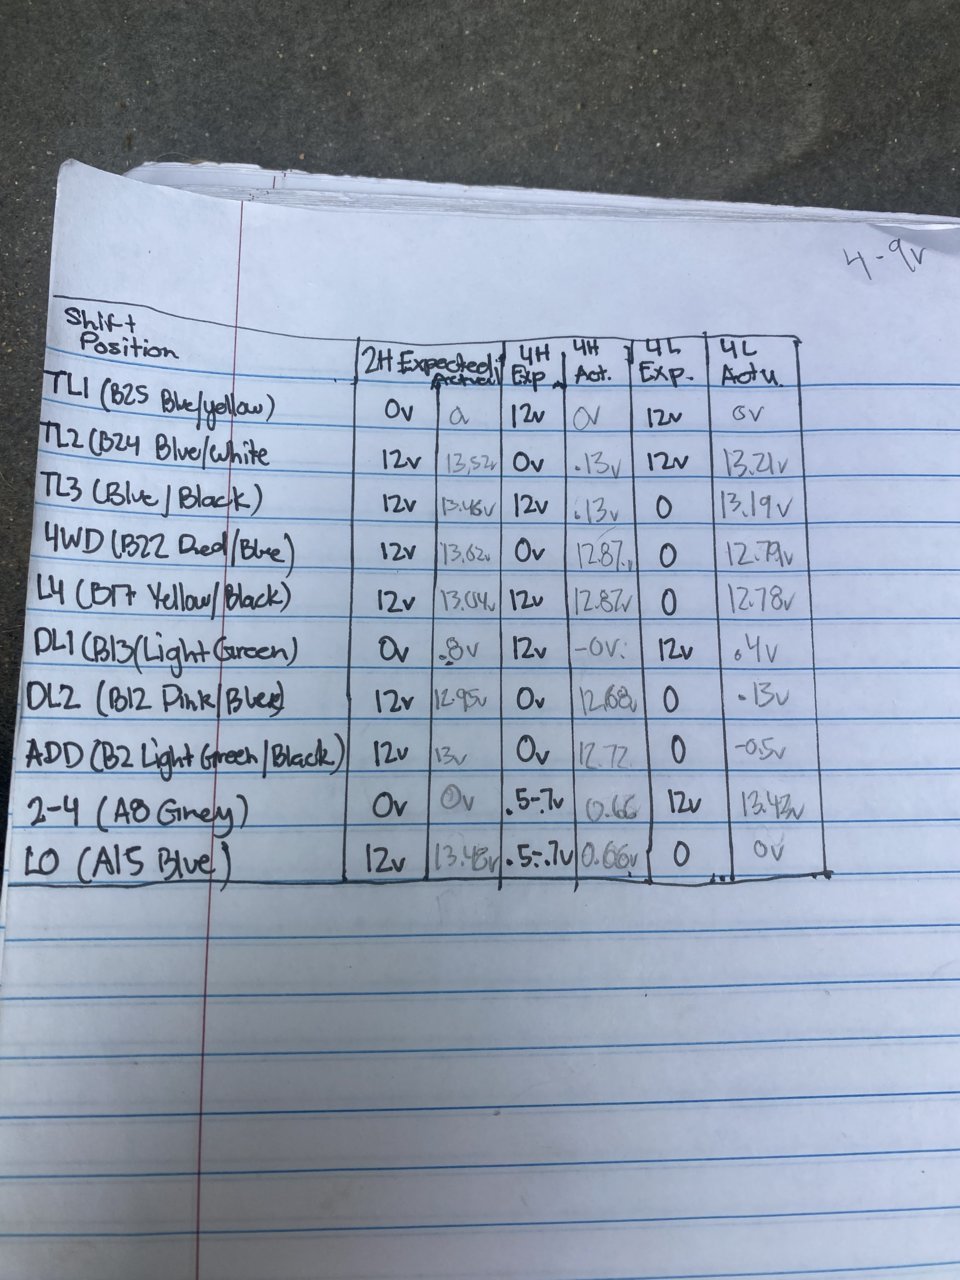 4-9v
Shift Position 2H Expected Actual 4H Exp. 4H Act. 4L Exp. 4L Actu.
TL1 (B25 Blue/yellow) 0v 0 12v 0v 12v 0v
TL2 (B24 Blue/White 12v 13.52v 0v .13v 12v 13.21v
TL3 (Blue/Black) 12v 13.46v 12v .13v 0 13.19v
4WD (B22 Red/Blue) 12v 13.62v 0v 12.87v 0 12.79v
L4 (B17 Yellow/Black) 12v 13.04v 12v 12.87v 0 12.78v
DL1 (B13(Light Green) 0v .8v 12v -0v. 12v .4v
DL2 (B12 Pink/Blue) 12v 12.95v 0v 12.68v 0 .13v
ADD (B2 Light Green/Black) 12v 13v 0v 12.72 0 -0.5v
2-4 (A8 Grey) 0v 0v .5-.7v 0.66 12v 13.43v
LO (A15 Blue) 12v 13.48v .5-.7v 0.66v 0 0v